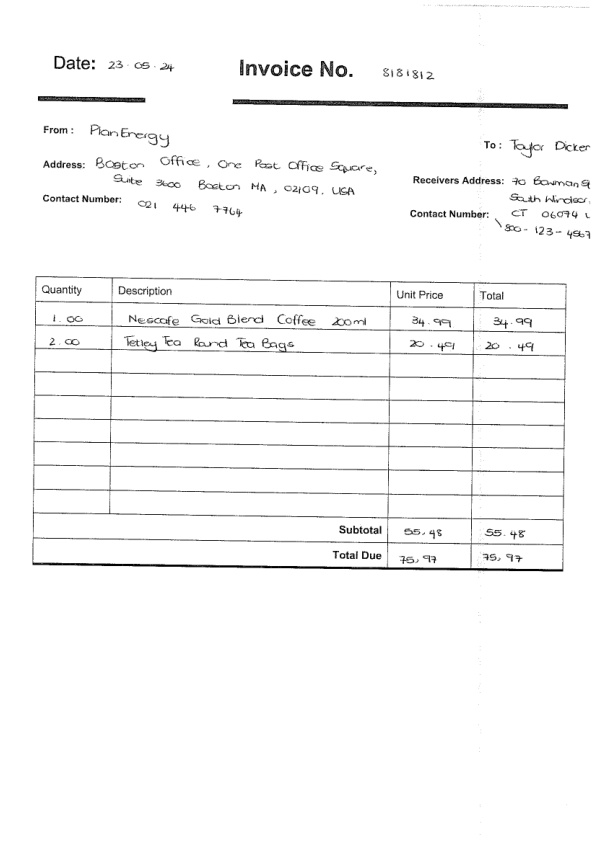 Date: 23.05.24
Invoice No. 8181812
From: PlanEnergy
Address: Boston Office, One Post Office Square,
Suite 3600 Boston MA, 02109, USA
Contact Number: 021 446 7764
To: Taylor Dicker
Receivers Address: 70 Bowman St
South Windsor,
CT 06074 U
Contact Number: 800-123-4567
Quantity Description Unit Price Total
1.00 Nescafe Gold Blend Coffee 200ml 34.99 34.99
2.00 Tetley Tea Round Tea Bags 20.49 20.49
Subtotal 55.48 55.48
Total Due 75.97 75.97